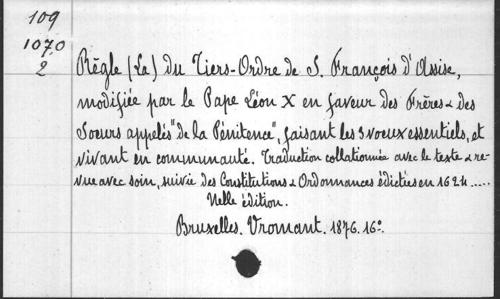 109
1070
2
Règle (La) du Tiers-Ordre de S. François d'Assise,
modifiée par le Pape Léon X en faveur des Frères & des
Soeurs appelés "de la Pénitence", faisant les 3 voeux essentiels, et
vivant en communauté. Traduction collationnée avec le texte & re-
vue avec soin, suivie des Constitutions & Ordonnances édictées en 1624.....
Nelle édition.
Bruxelles. Vromant. 1876. 16º.